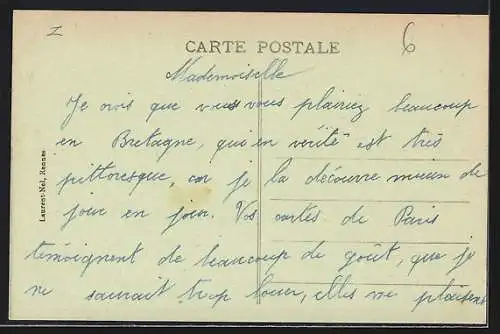 I
6
CARTE POSTALE
Mademoiselle
Je vois que vous vous plairiez beaucoup
en Bretagne, qui en vérité est très
pittoresque, car je la découvre mieux de
jour en jour. Vos cartes de Paris
témoignent de beaucoup de goût, que je
ne saurait trop louer, elles me plaisent
Laurent-Nel, Rennes